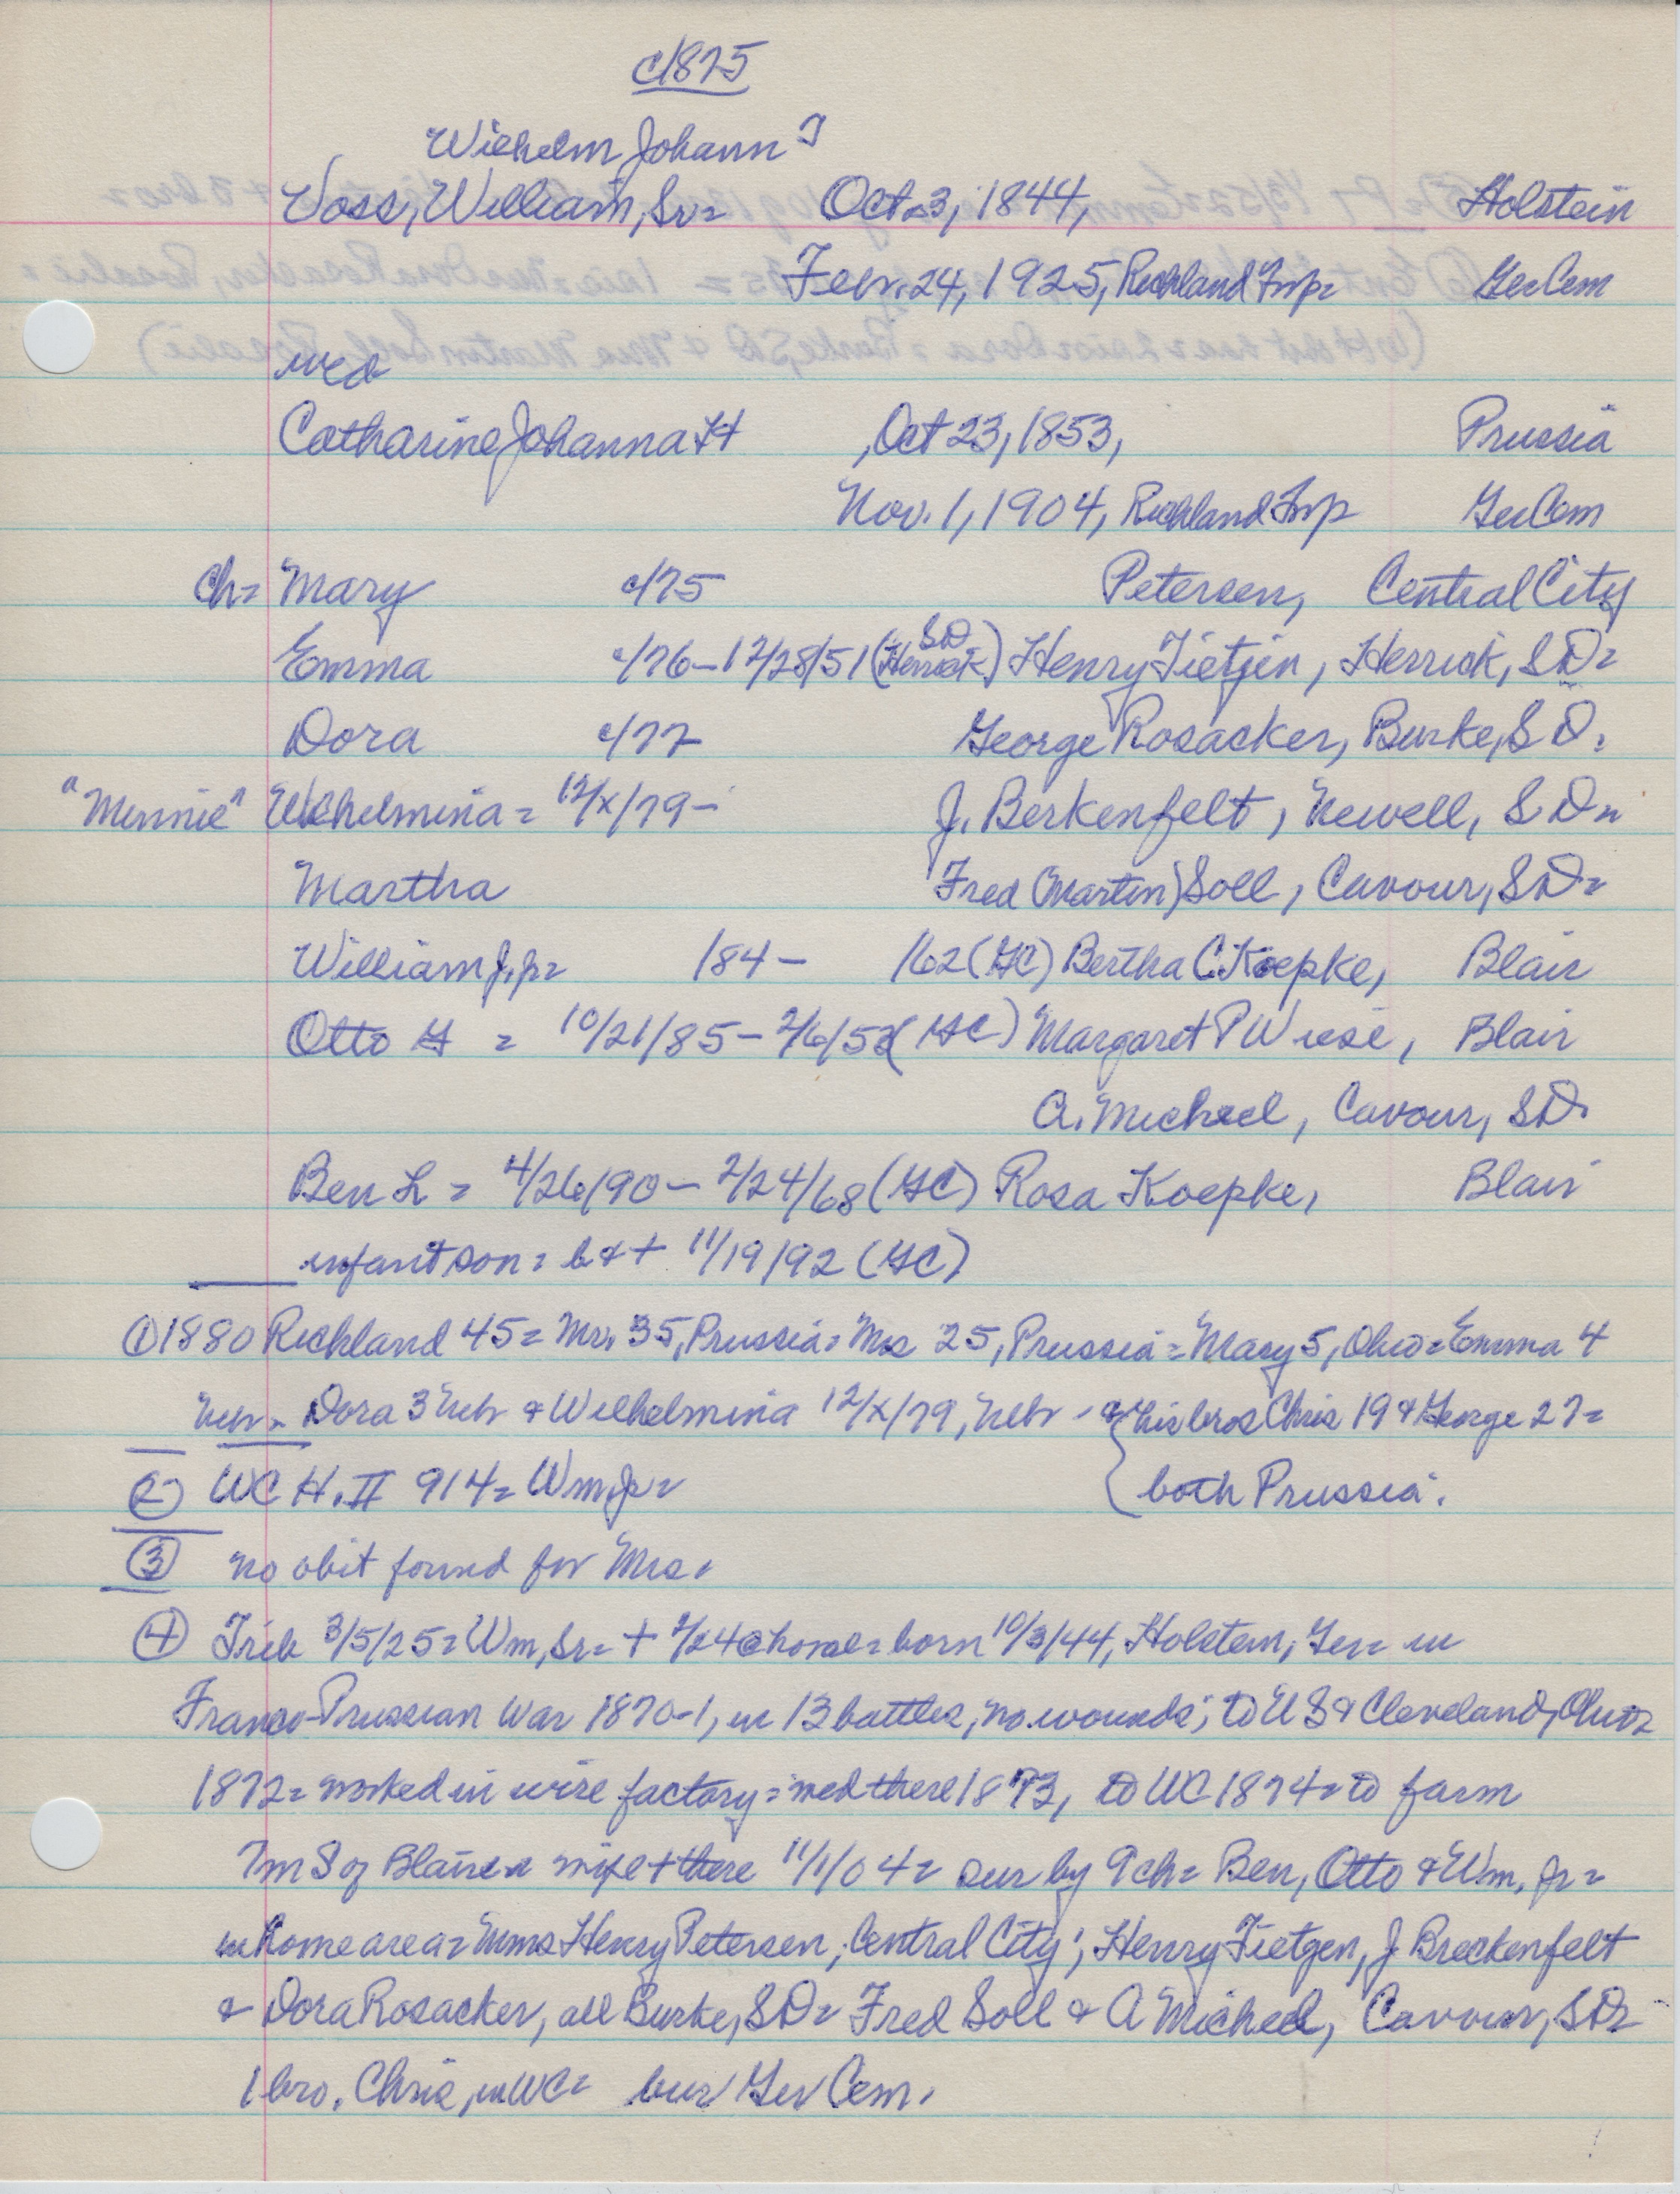 c1875
Wilhelm Johann J
Voss, William, Sr= Oct 3, 1844, Holstein
Febr. 24, 1925, Richland Twp= GerCem
wed
Catharine Johanna H , Oct 23, 1853, Prussia
Nov. 1, 1904, Richland Twp GerCem
Ch= Mary c/75 Petersen, Central City
Emma c/76-12/28/51 (Herrick SD) Henry Tietjen, Herrick, SD=
Dora c/77 George Rosacker, Burke, SD.
"Minnie" Wilhelmina = 12/x/79- J. Berkenfelt, Newell, SD=
Martha Fred (Martin) Soll, Cavour, SD=
William J, Jr= /84- /62 (GC) Bertha C. Koepke, Blair
Otto H = 10/21/85-2/6/52 (GC) Margaret P Wiese, Blair
A. Micheel, Cavour, SD.
Ben L = 4/26/90-2/24/68 (GC) Rosa Koepke, Blair
infant son= b & + 11/19/92 (GC)
① 1880 Richland 45= Mr. 35, Prussia= Mrs 25, Prussia= Mary 5, Ohio= Emma 4
Neb= Dora 3 Neb & Wilhelmina 12/x/79, Neb - & {his bros Chris 19 & George 27=
② WC H. II 914= Wm, Jr= both Prussia.
③ no obit found for Mrs.
④ Trib 3/5/25= Wm, Sr= + 2/24 @ home= born 10/3/44, Holstein, Ger= in
Franco-Prussian War 1870-1, in 13 battles, no wounds; to US & Cleveland, Ohio=
1872= worked in wire factory= wed there 1873, to WC 1874= to farm
7m S of Blair= wife + there 11/1/04= sur by 9 ch= Ben, Otto & Wm. Jr=
in home area= Mmes Henry Petersen, Central City; Henry Tietgen, J Breckenfelt
& Dora Rosacker, all Burke, SD= Fred Soll & A Micheel, Cavour, SD=
1 bro. Chris, in WC= bur Ger Cem.